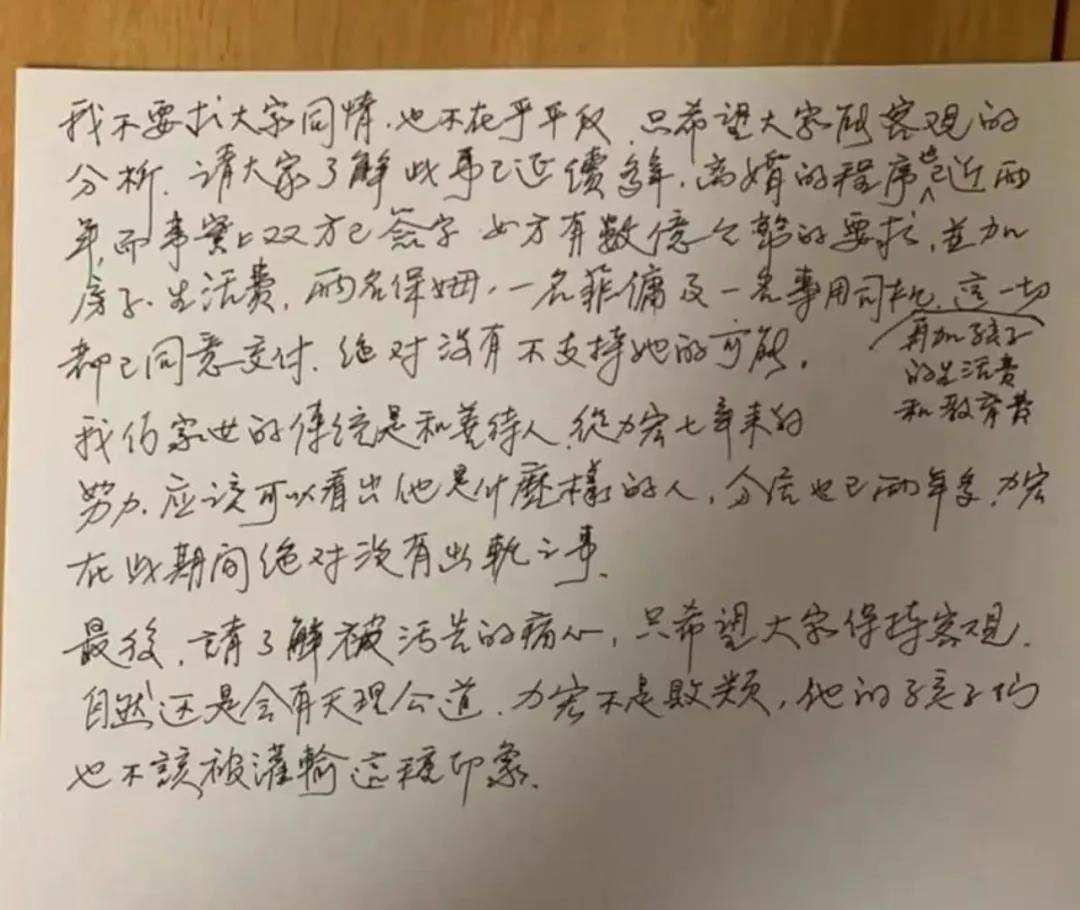 我不要求大家同情,也不在乎平反,只希望大家能客观的
分析,请大家了解此事已延續多年,离婚的程序也已近两
年,而事實上双方已簽字 女方有數億台幣的要求,並加
房子、生活費,两名保姆,一名菲傭及一名專用司机,這一切
再加孩子
的生活費
和教育費
都已同意交付,绝对沒有不支持她的可能,
我们家世的传统是和善待人,從力宏七年来的
努力,应该可以看出他是什麽樣的人,分居也已两年多,力宏
在此期间绝对沒有出軌之事,
最後,請了解被污告的痛心,只希望大家保持客观,
自然还是会有天理公道,力宏不是敗類,他的孩子们
也不該被灌輸這種印象,